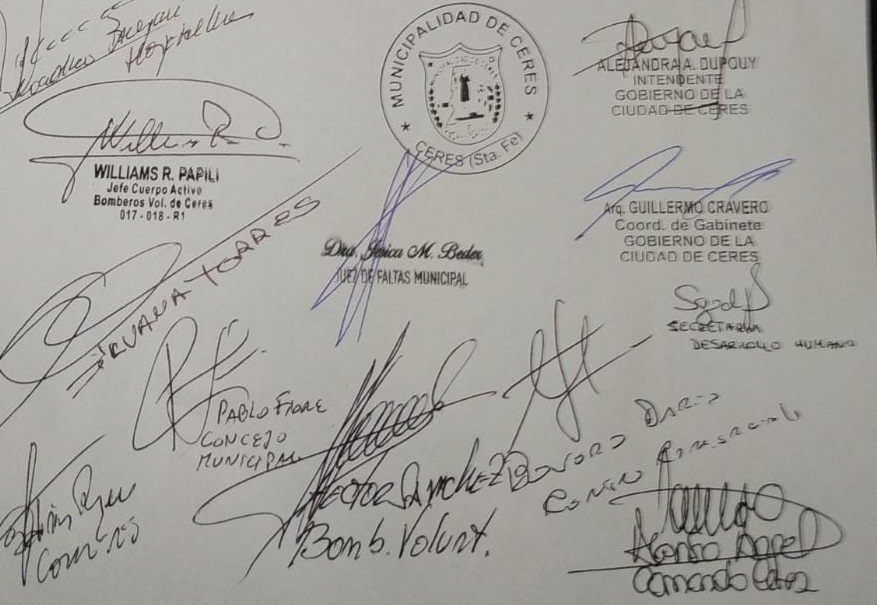 MUNICIPALIDAD DE CERES
CERES (Sta. Fe)
ALEJANDRA A. DUPOUY
INTENDENTE
GOBIERNO DE LA
CIUDAD DE CERES
WILLIAMS R. PAPILI
Jefe Cuerpo Activo
Bomberos Vol. de Ceres
017 - 018 - R1
Dra. Jesica M. Beder
JUEZ DE FALTAS MUNICIPAL
Arq. GUILLERMO CRAVERO
Coord. de Gabinete
GOBIERNO DE LA
CIUDAD DE CERES
SILVANA TORRES
SECRETARIA
DESARROLLO HUMANO
PABLO FIORE
CONCEJO
MUNICIPAL
HECTOR SANCHEZ
Bomb. Volunt.
DARIO
CENTRO COMERCIAL
Alonso Angel
Comando Ceres